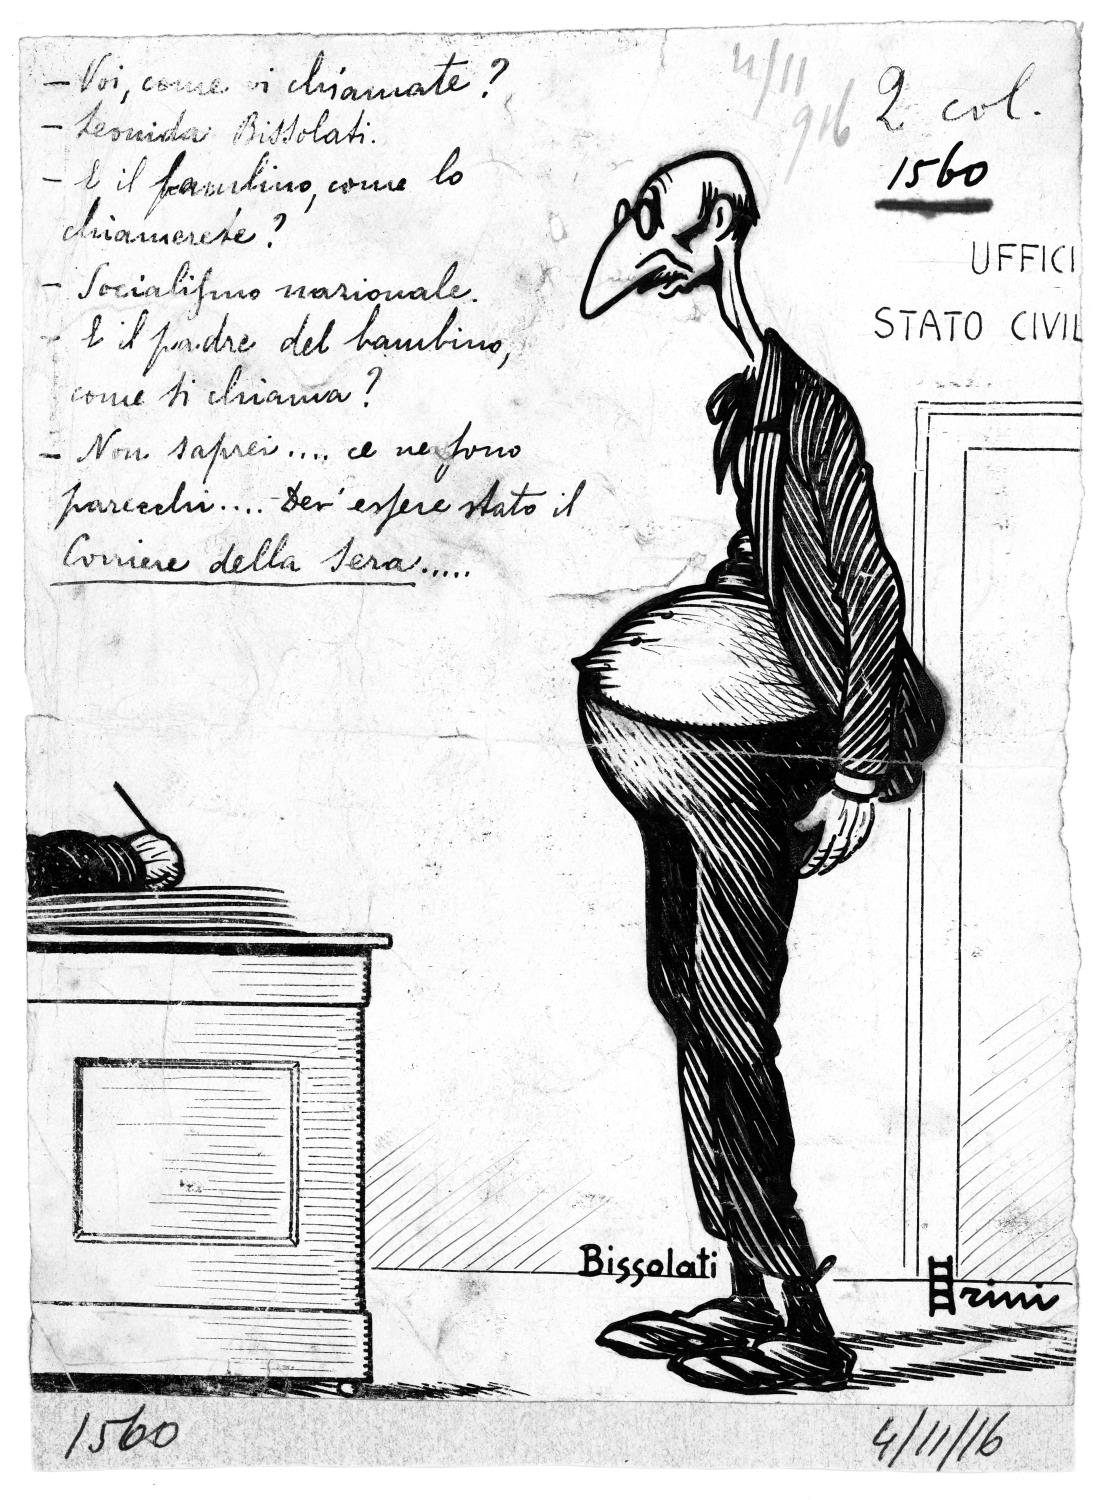 – Voi, come vi chiamate?
– Leonida Bissolati.
– E il bambino, come lo
chiamerete?
– Socialismo nazionale.
– E il padre del bambino,
come si chiama?
– Non saprei.... ce ne sono
parecchi.... Dev' essere stato il
Corriere della Sera.....
4/11
916
2 col.
1560
UFFICI
STATO CIVIL
Bissolati
rini
1560
4/11/16